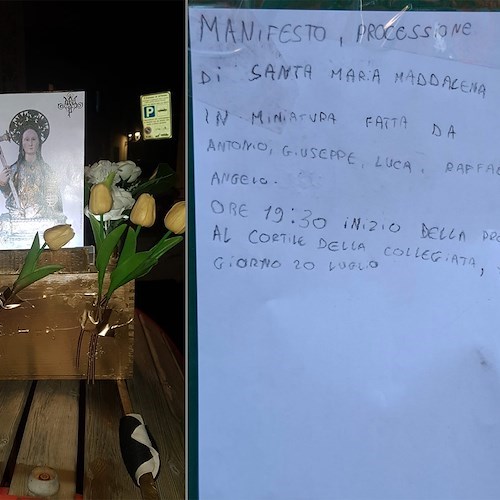 MANIFESTO, PROCESSIONE
DI SANTA MARIA MADDALENA
IN MINIATURA FATTA DA
ANTONIO, GIUSEPPE, LUCA, RAFFAE
ANGELO.
ORE 19:30 INIZIO DELLA PRO
AL CORTILE DELLA COLLEGIATA,
GIORNO 20 LUGLIO
P